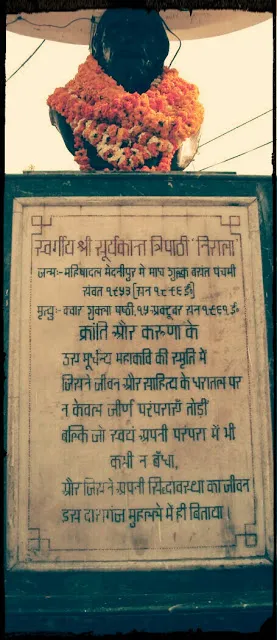 स्वर्गीय श्री सूर्यकान्त त्रिपाठी "निराला"
जन्मः- महिषादल मेदनीपुर में माघ शुक्ल बसंत पंचमी
संवत १९५३ [सन १८९६ ई॰]
मृत्युः- क्वार शुक्ला षष्ठी, १५ अक्टूबर सन १९६१ ई॰
क्रांति और करुणा के
उस मूर्धन्य महाकवि की स्मृति में
जिसने जीवन और साहित्य के धरातल पर
न केवल जीर्ण परंपराएँ तोड़ीं
बल्कि जो स्वयं अपनी परंपरा में भी
कभी न बँधा,
और जिसने अपनी सिद्धावस्था का जीवन
इस दारागंज मुहल्ले में ही बिताया।